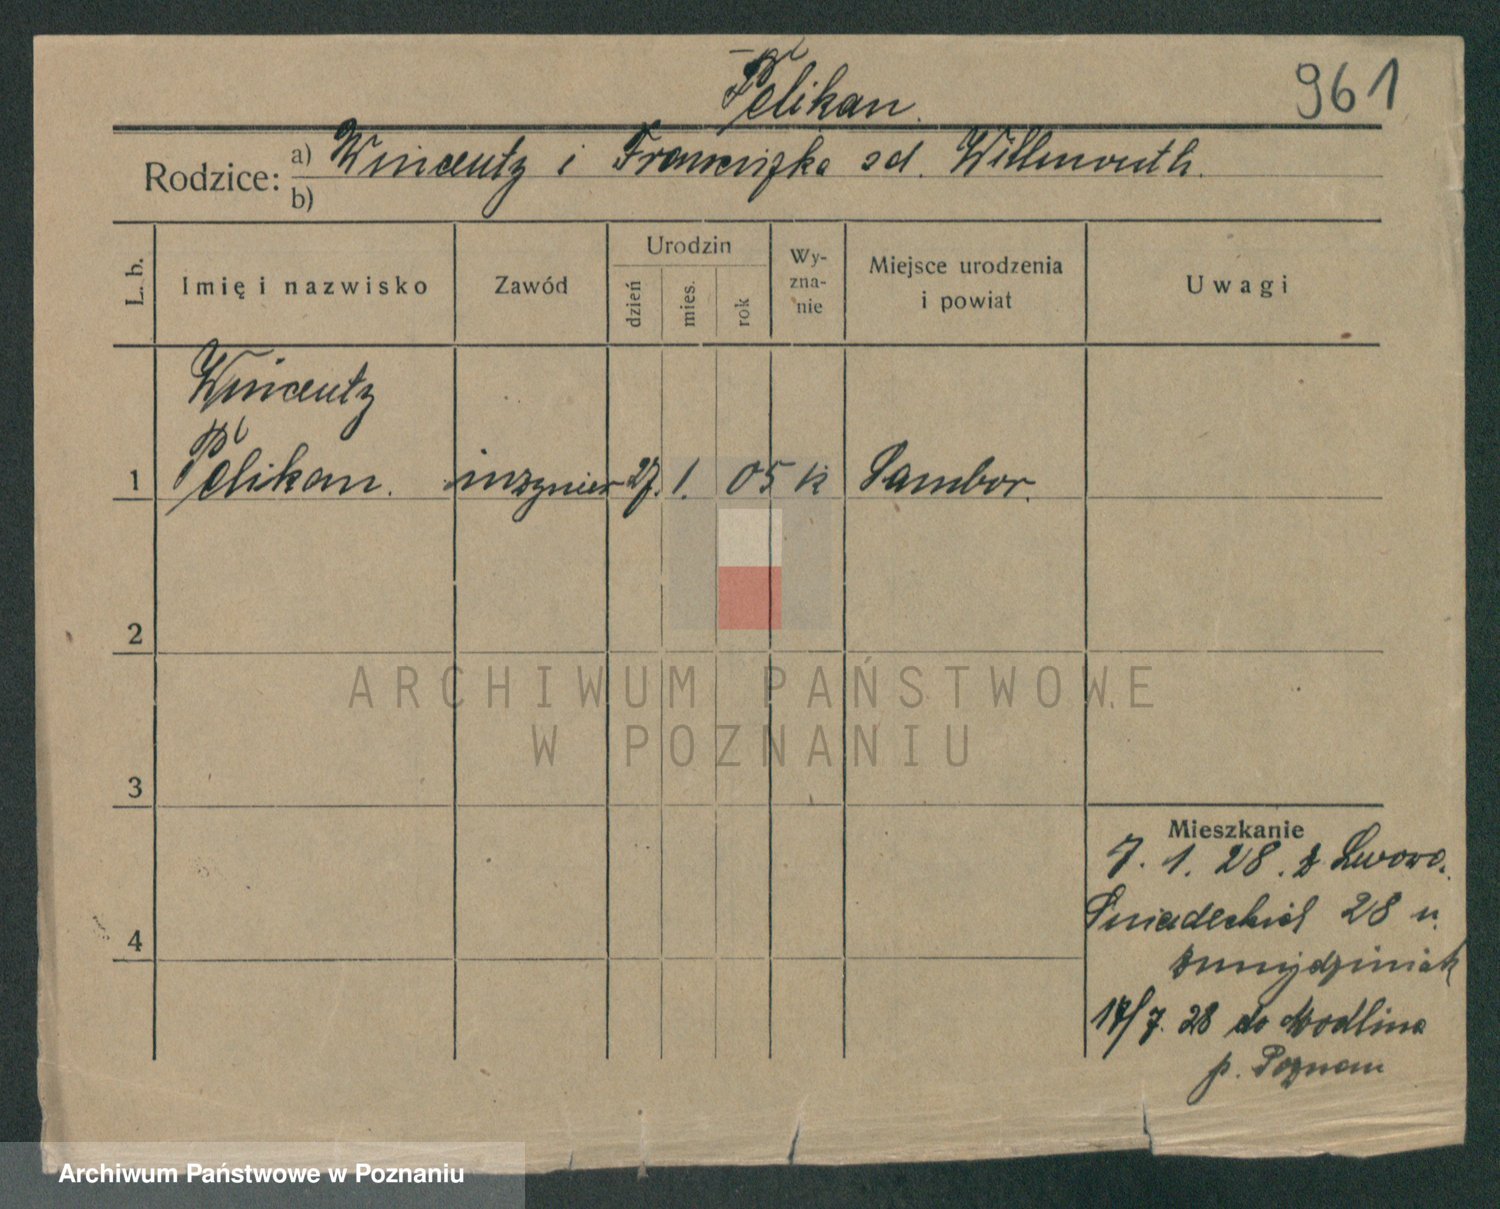 Pelikan.
961
Rodzice: a) Wincenty i Franciszka zd. Willmouth.
b)
L. b.
Imię i nazwisko
Zawód
Urodzin
dzień
mies.
rok
Wy-
zna-
nie
Miejsce urodzenia
i powiat
Uwagi
Wincenty
1 Pelikan. inżynier 27. 1. 05 k Sambor.
2
ARCHIWUM PAŃSTWOWE
W POZNANIU
3
Mieszkanie
7. 1. 28. z Lwowa.
Śniadeckich 28 u.
4
17/7. 28 do Modlina
p. Poznań
Archiwum Państwowe w Poznaniu